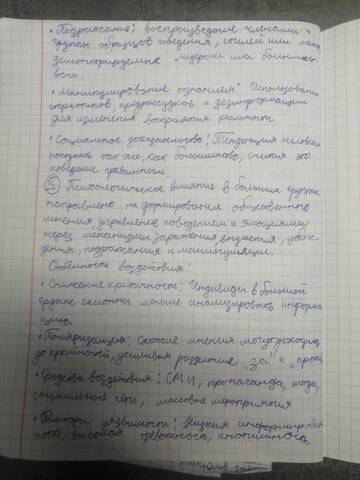 • Подражание: воспроизведение членами
группы образцов поведения, стилей или
демонстрируемых лидером или большинст-
вом.
• Манипулирование сознанием: Использование
стереотипов, предрассудков и дезинформации
для изменения восприятия реальности
• Социальное доказательство: Тенденция человека
поступать так же, как большинство, считая это
поведение правильным.
5) Психологическое влияние в больших группах
направлено на формирование общественного
мнения, управление поведением и эмоциями
через механизмы заражения внушения, убеж-
дения, подражания и манипуляции.
Особенности воздействия:
• Снижение критичности: Индивиды в большой
группе склонны меньше анализировать информа-
цию.
• Поляризация: Схожие мнения могут доходить
до крайности, усиливая разделение „За" и „против
• Средства воздействия: СМИ, пропаганда, мода,
социальные сети, массовые мероприятия
• Факторы уязвимости: Низкая информирован-
ность, высокая тревожность, анонимность,